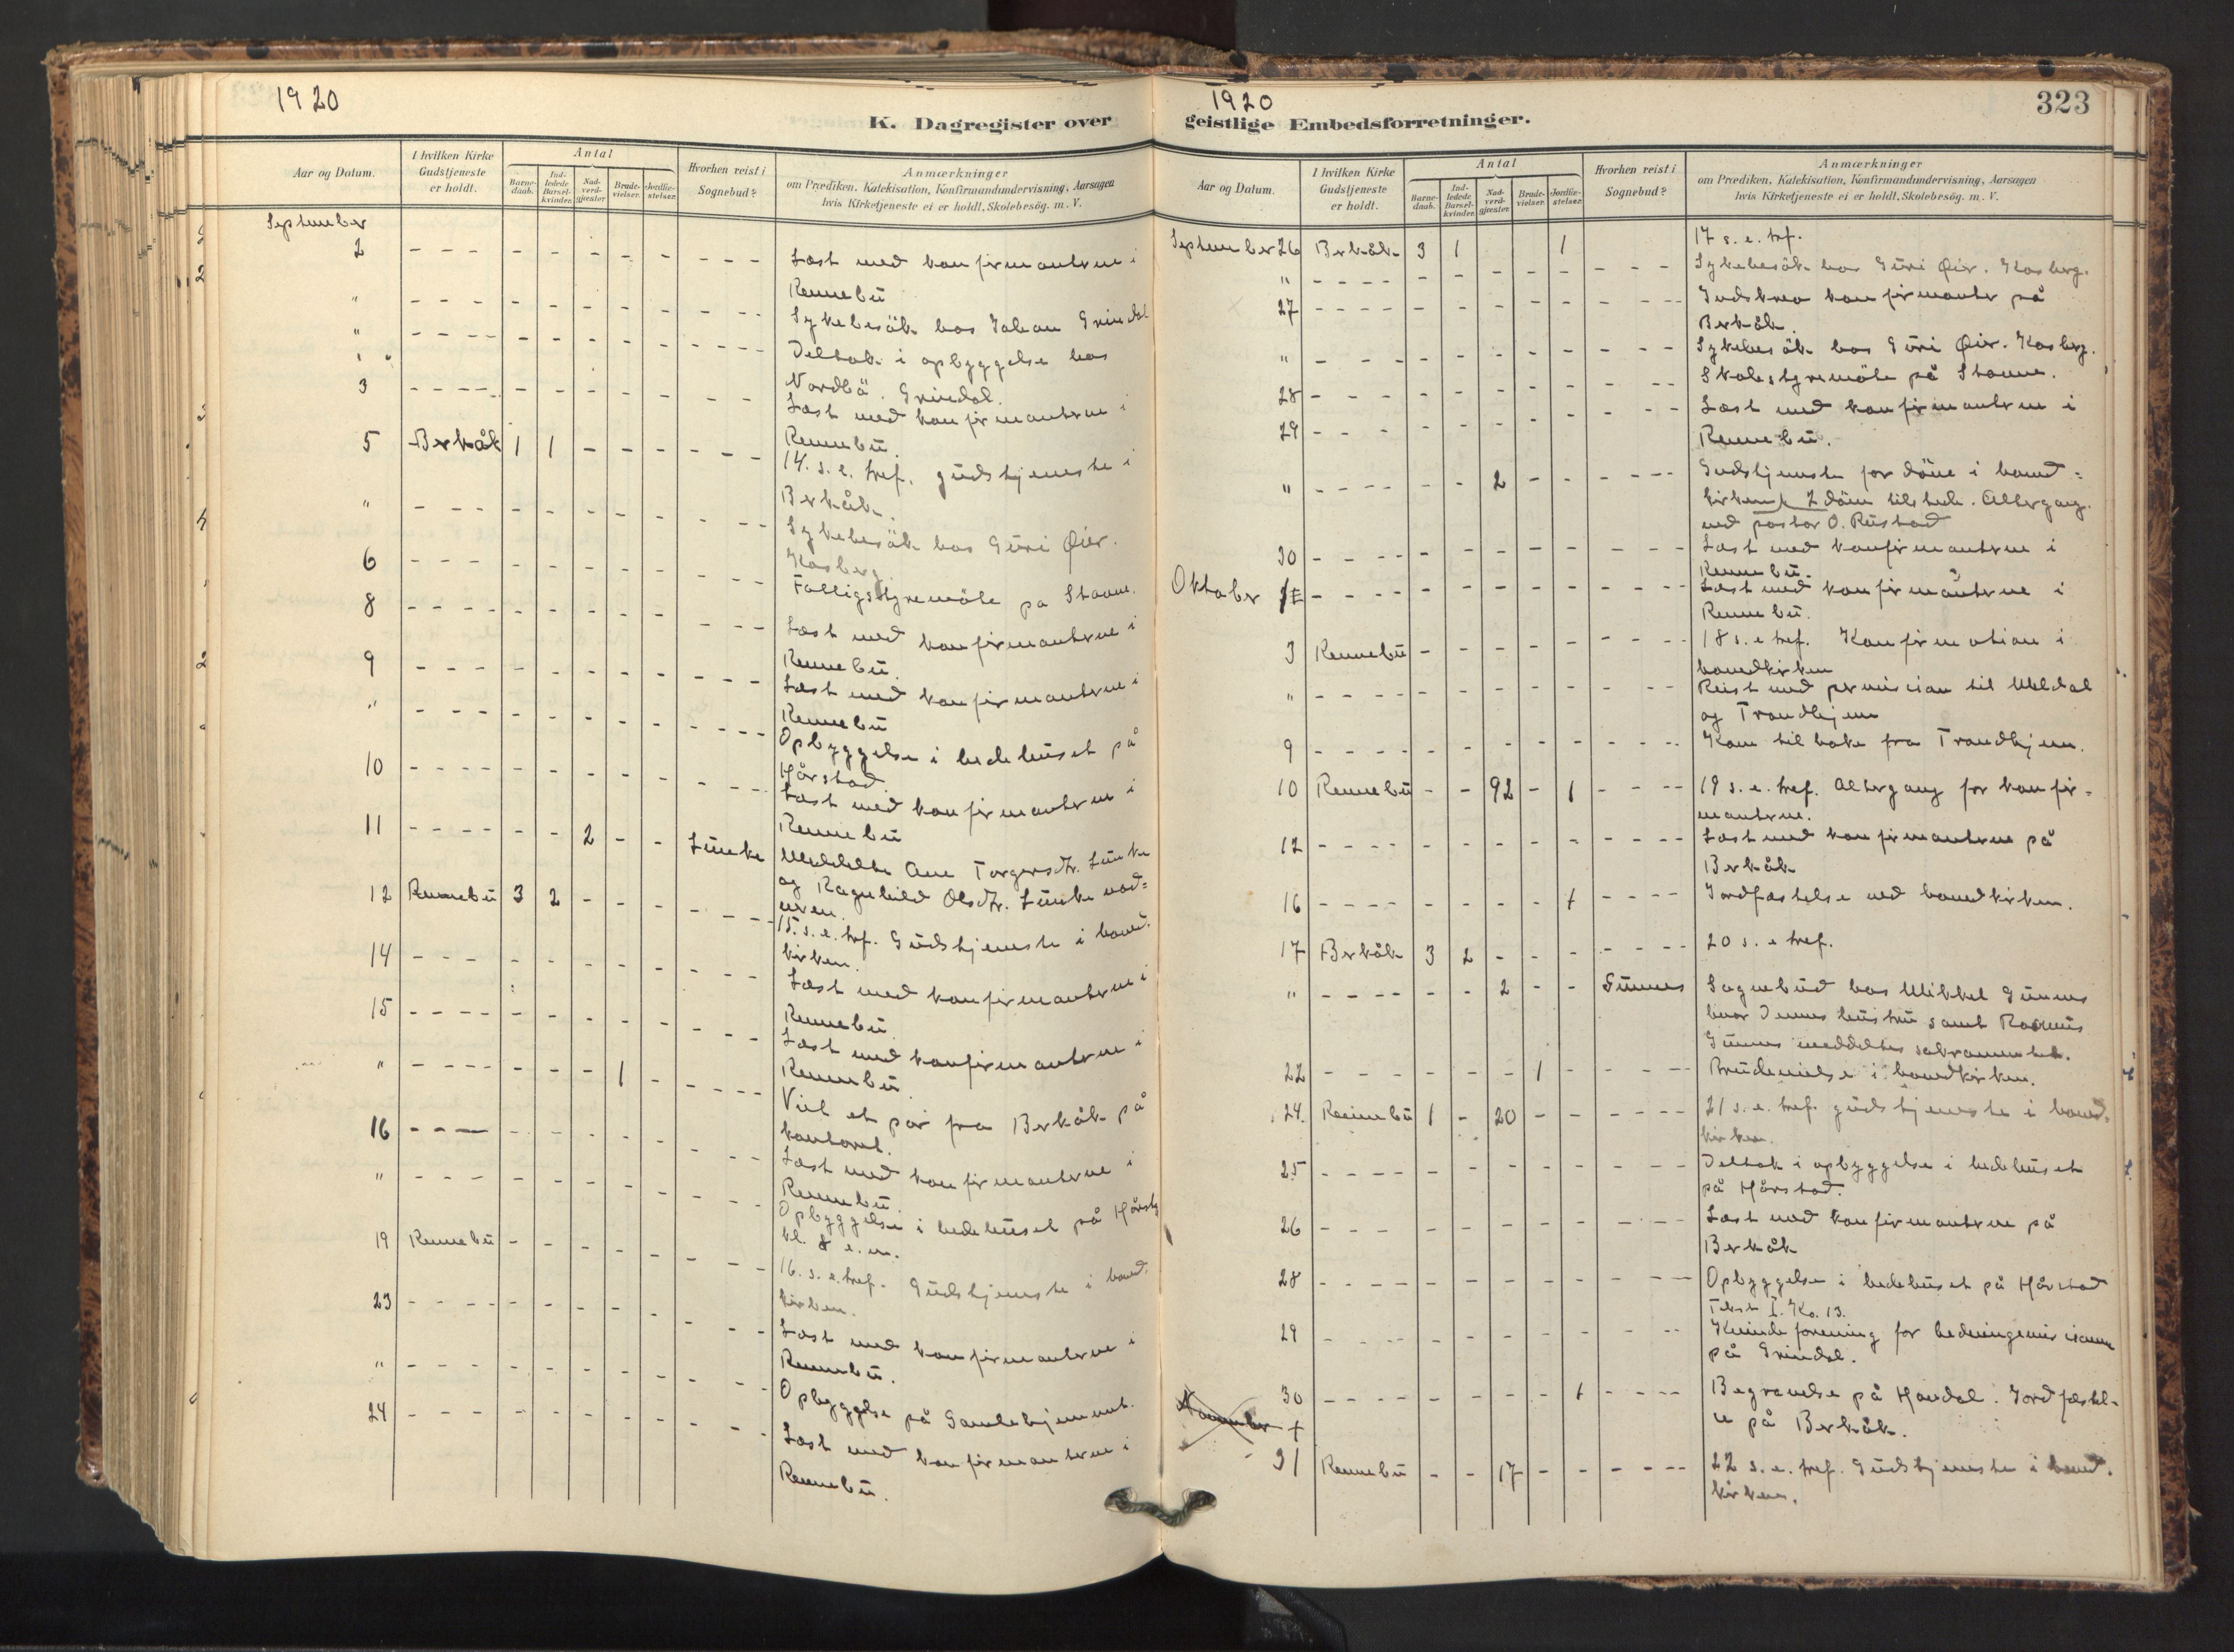 1920
K. Dagregister over
Aar og Datum.
I hvilken Kirke
Gudstjeneste
er holdt.
Antal
Barne-
daab.
Ind-
ledede
Barsel-
kvinder.
Nad-
verd-
gjæster.
Brude-
vielser.
Jordfæ-
stelser.
Hvorhen reist i
Sognebud?
Anmærkninger
om Prædiken, Katekisation, Konfirmandundervisning, Aarsagen
hvis Kirketjeneste ei er holdt, Skolebesög. m. V.
September
2 - - - - - - - - - - - Læst med konfirmanterne i
Rennebu
" - - - - - - - - - - - Sykebesök hos Johan Grindal
" - - - - - - - - - - - Deltok i opbyggelse hos
Nordbö. Grindal.
3 - - - - - - - - - - - Læst med konfirmanterne i
Rennebu.
5 Berkåk 1 1 - - - - - - 14. s. e. tref. gudstjeneste i
Berkåk.
" - - - - - - - - - - - Sykebesök hos Guri Øier.
Kosberg.
6 - - - - - - - - - - - Fattigstyremöte på Stavne.
8 - - - - - - - - - - - Læst med konfirmanterne i
Rennebu.
9 - - - - - - - - - - - Læst med konfirmanterne i
Rennebu
" - - - - - - - - - - - Opbyggelse i bedehuset på
Hårstad.
10 - - - - - - - - - - - Læst med konfirmanterne i
Rennebu
11 - - - - - - 2 - - Lunke Meddelte Ane Torgersdtr. Lunke
og Ragnhild Olsdtr. Lunke nad=
veren.
12 Rennebu 3 2 - - - - - - 15. s. e. tref. Gudstjeneste i hoved.
kirken.
14 - - - - - - - - - - - Læst med konfirmanterne i
Rennebu
15 - - - - - - - - - - - Læst med konfirmanterne i
Rennebu
" - - - - - - - 1 - - - - Viet et par fra Berkåk på
kontoret.
16 - - - - - - - - - - - Læst med konfirmanterne i
Rennebu.
" - - - - - - - - - - - Opbyggelse i bedehuset på Hårstad
kl. 8 e. m.
19 Rennebu - - - - - - - - 16. s. e. tref. Gudstjeneste i hoved.
kirken.
23 - - - - - - - - - - - Læst med konfirmanterne i
Rennebu.
" - - - - - - - - - - - Opbyggelse på Gamlehjemmet.
24 - - - - - - - - - - - Læst med konfirmanterne i
Rennebu.
1920
323
geistlige Embedsforretninger.
Aar og Datum.
I hvilken Kirke
Gudstjeneste
er holdt.
Antal
Barne-
daab.
Ind-
ledede
Barsel-
kvinder.
Nad-
verd-
gjæster.
Brude-
vielser.
Jordfæ-
stelser.
Hvorhen reist i
Sognebud?
Anmærkninger
om Prædiken, Katekisation, Konfirmandundervisning, Aarsagen
hvis Kirketjeneste ei er holdt, Skolebesög. m. V.
September 26 Berkåk 3 1 1 17 s. e. tref.
" - - - - - - - - - - - Sykebesök hos Guri Øier. Kosberg.
27 - - - - - - - - - - - Indskrev konfirmanter på
Berkåk.
" - - - - - - - - - - - Sykebesök hos Guri Øier. Kosberg.
28 - - - - - - - - - - - Skolestyremöte på Stavne.
29 - - - - - - - - - - - Læst med konfirmanterne i
Rennebu.
" - - - - - - 2 - - - - - Gudstjeneste for döve i hoved=
kirken, 2 döve tilstede. Altergang.
ved pastor O. Rustad
30 - - - - - - - - - - - Læst med konfirmanterne i
Rennebu.
Oktober 1 - - - - - - - - - - - Læst med konfirmanterne i
Rennebu.
3 Rennebu - - - - - - - - 18 s. e tref. Konfirmation i
hovedkirken
" - - - - - - - - - - - Reist med permision til Meldal
og Trondhjem
9 - - - - - - - - - - - Kom tilbake fra Trondhjem.
10 Rennebu - - 92 - 1 - - - - 19 s. e. tref. Altergang for konfir=
manterne.
12 - - - - - - - - - - - Læst med konfirmanterne på
Berkåk
16 - - - - - - - - 1 - - - - Jordfæstelse ved hovedkirken.
17 Berkåk 3 2 - - - - - - 20 s. e tref.
" - - - - - - 2 - - Gunnes Sognebud hos Mikkel Gunnes
hvor dennes hustru samt Rasmus
Gunnes meddeltes sakramentet.
22 - - - - - - - 1 - - - - Brudevielse i hovedkirken.
24. Rennebu 1 - 20 - - - - - - 21 s. e. tref. gudstjeneste i hoved=
kirken.
25 - - - - - - - - - - - Deltok i opbyggelse i bedehuset
på Hårstad.
26 - - - - - - - - - - - Læst med konfirmanterne på
Berkåk
28 - - - - - - - - - - - Opbyggelse i bedehuset på Hårstad
Tekst I. Ko. 13.
29 - - - - - - - - - - - Kvindeforening for hedningemisionen
på Grindal.
30 - - - - - - - - 1 - - - - Begravelse på Havdal. Jordfæstel-
se på Berkåk.
November
31 Rennebu - - 17 - - - - - - 22 s. e. tref. Gudstjeneste i hoved.
kirken.